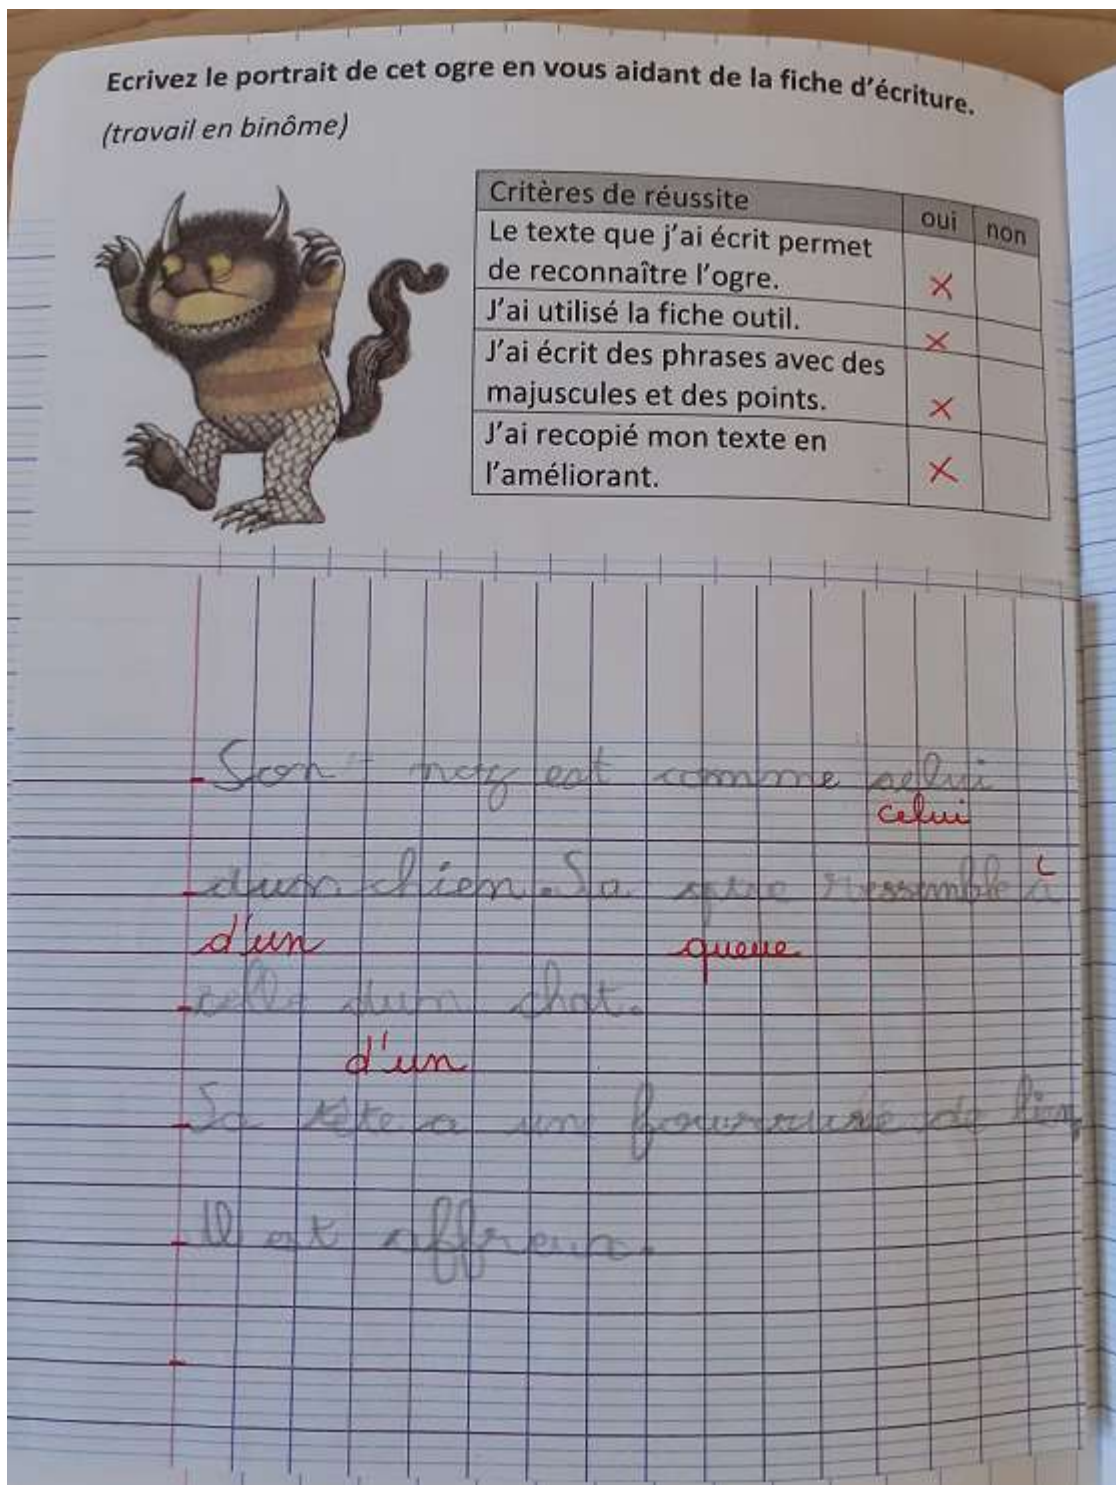 Ecrivez le portrait de cet ogre en vous aidant de la fiche d'écriture.
(travail en binôme)
Critères de réussite oui non
Le texte que j'ai écrit permet
de reconnaître l'ogre. X
J'ai utilisé la fiche outil. X
J'ai écrit des phrases avec des
majuscules et des points. X
J'ai recopié mon texte en
l'améliorant. X
Son nez est comme selui
celui
dun chien. Sa ressemble à
d'un queue
celle dun chat.
d'un
Sa tête a une fourrure de lion
Il est affreux.